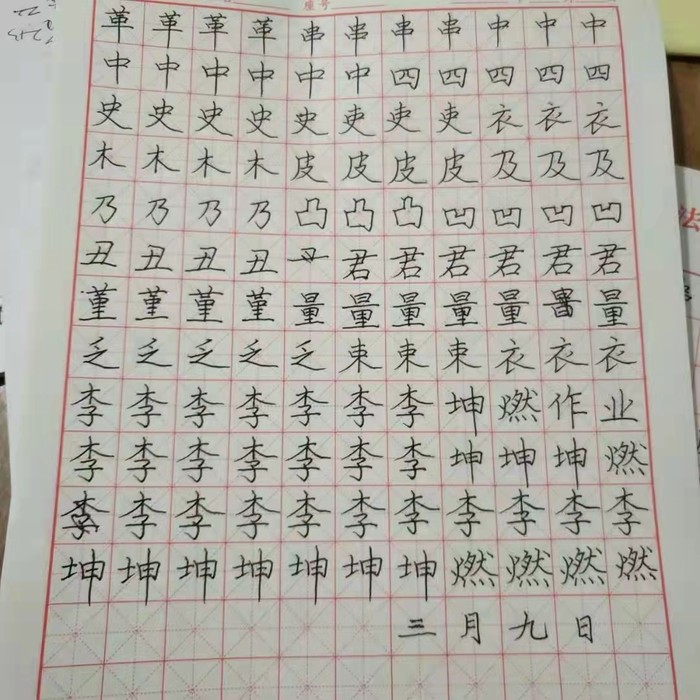 座号
革革革革串串串串中中中
中中中中中中四四四四四
史史史史史吏吏吏衣衣衣
木木木木皮皮皮皮及及及
乃乃乃乃凸凸凸凹凹凹凹
丑丑丑丑毌君君君君君君
堇堇堇堇量量量量量量
乏乏乏乏乏束束束衣衣衣
李李李李李李李坤燃作业
李李李李李李李坤坤坤燃
李李李李李李李李李李李
坤坤坤坤坤坤坤燃燃燃燃
三月九日
法